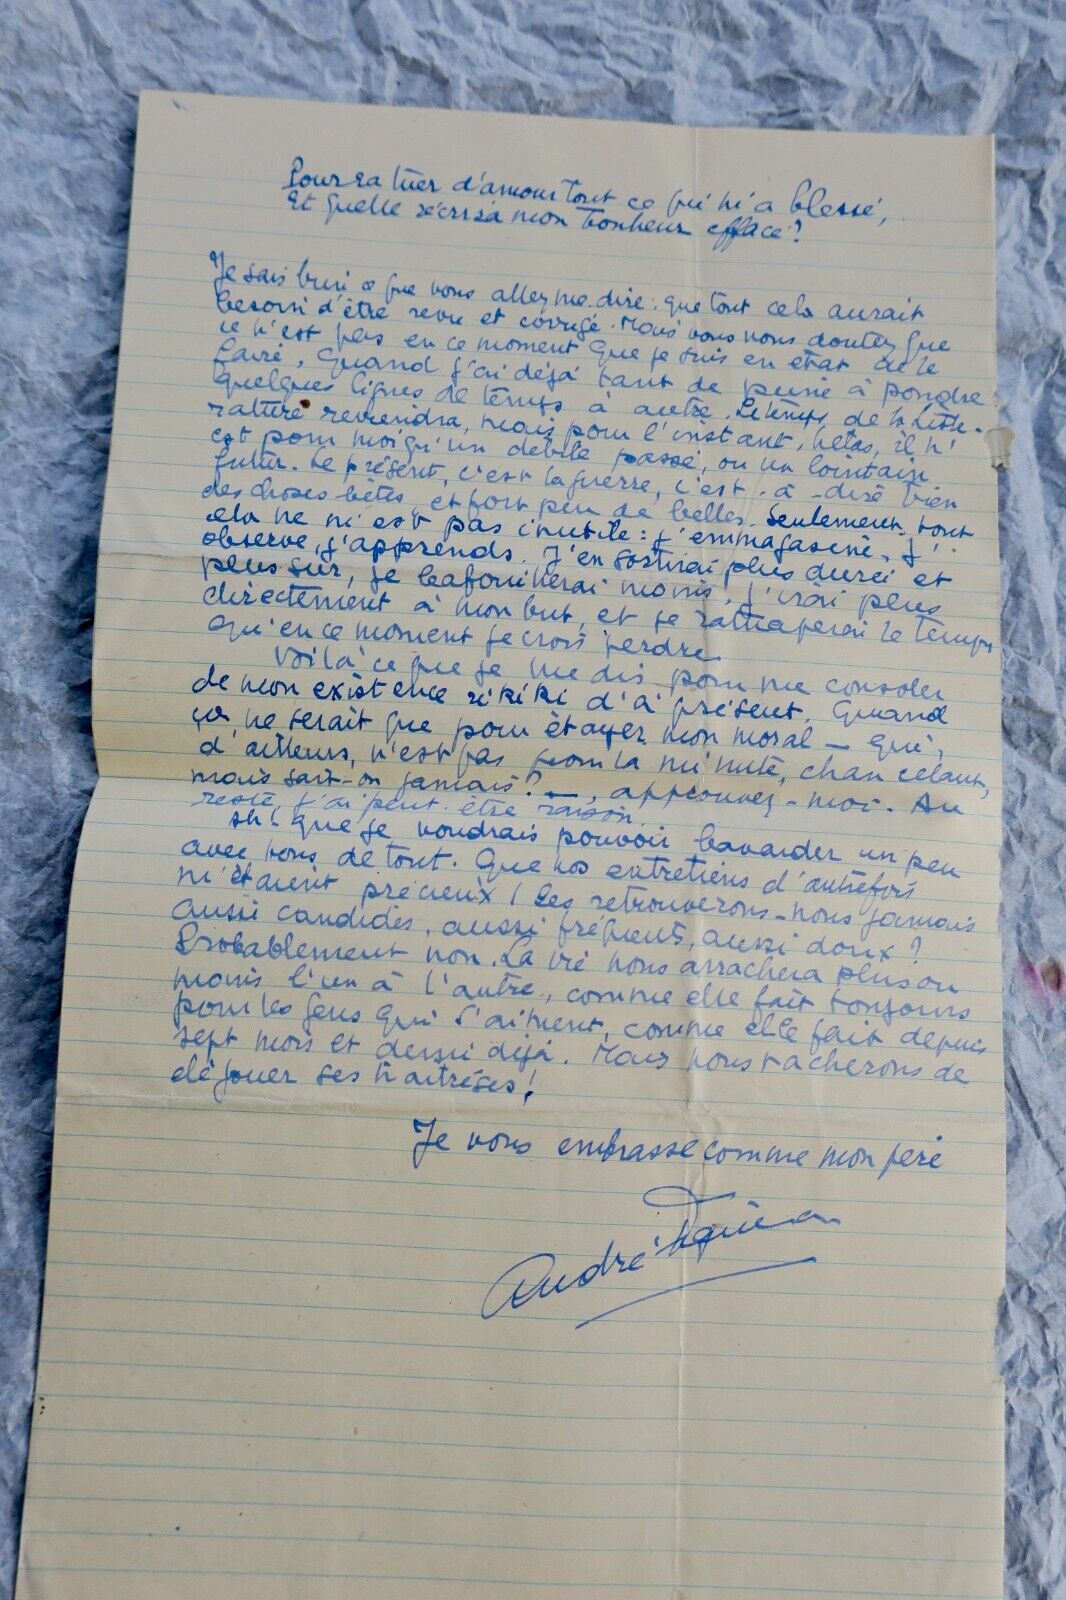 Pourra tuer d'amour tout ce qui m'a blessé,
Et quelle récrira mon bonheur effacé?
Je sais bien ce que vous allez me dire: que tout cela aurait
besoin d'être revu et corrigé. Mais vous vous doutez que
ce n'est pas en ce moment que je suis en état de le
faire, quand j'ai déjà tant de peine à pondre
quelques lignes de temps à autre. Le temps de la Litté-
rature reviendra, mais pour l'instant, hélas, il n'
est pour moi qu'un débile passé, ou un lointain
futur. Le présent, c'est la guerre, c'est-à-dire bien
des choses bêtes, et fort peu de belles. Seulement, tout
cela ne m'est pas inutile: j'emmagasine, j'
observe, j'apprends. J'en sortirai plus durci et
plus sûr, je bafouillerai moins. J'irai plus
directement à mon but, et je rattraperai le temps
qu'en ce moment je crois perdre.
Voilà ce que je me dis pour me consoler
de mon existence rikiki d'à présent. Quand
ça ne serait que pour étayer mon moral — qui,
d'ailleurs, n'est pas pour la minute, chancelant,
mais sait-on jamais? —, approuvez-moi. Au
reste, j'ai peut-être raison.
Ah! que je voudrais pouvoir bavarder un peu
avec vous de tout. Que nos entretiens d'autrefois
m'étaient précieux! Les retrouverons-nous jamais
aussi candides, aussi fréquents, aussi doux?
Probablement non. La vie nous arrachera plus ou
moins l'un à l'autre, comme elle fait toujours
pour les gens qui s'aiment, comme elle fait depuis
sept mois et demi déjà. Mais nous tâcherons de
déjouer ses traîtrises!
Je vous embrasse comme mon père
André